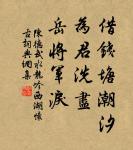 借錢塘潮汐
為君洗盡
岳將軍淚
陳德武水龍吟西湖懷
古詞典網集